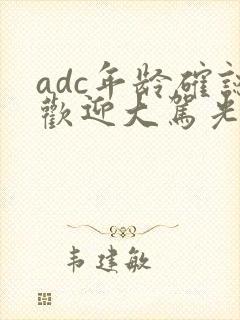 adc年龄確認
歡迎大駕光
韦建敏